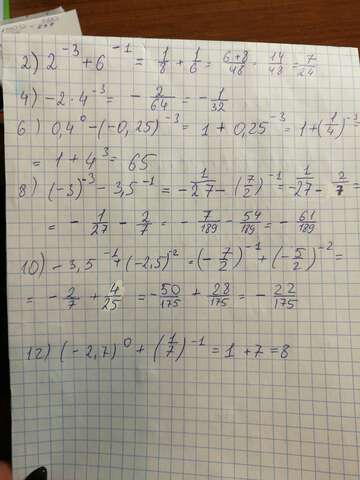 2) 2⁻³ + 6⁻¹ = 1/8 + 1/6 = (6+8)/48 = 14/48 = 7/24
4) -2 · 4⁻³ = - 2/64 = - 1/32
6) 0,4⁰ - (-0,25)⁻³ = 1 + 0,25⁻³ = 1 + (1/4)⁻³
= 1 + 4³ = 65
8) (-3)⁻³ - 3,5⁻¹ = - 1/27 - (7/2)⁻¹ = - 1/27 - 2/7 =
= - 1/27 - 2/7 = - 7/189 - 54/189 = - 61/189
10) - 3,5⁻¹ + (-2,5)⁻² = (- 7/2)⁻¹ + (- 5/2)⁻² =
= - 2/7 + 4/25 = - 50/175 + 28/175 = - 22/175
12) (-2,7)⁰ + (1/7)⁻¹ = 1 + 7 = 8